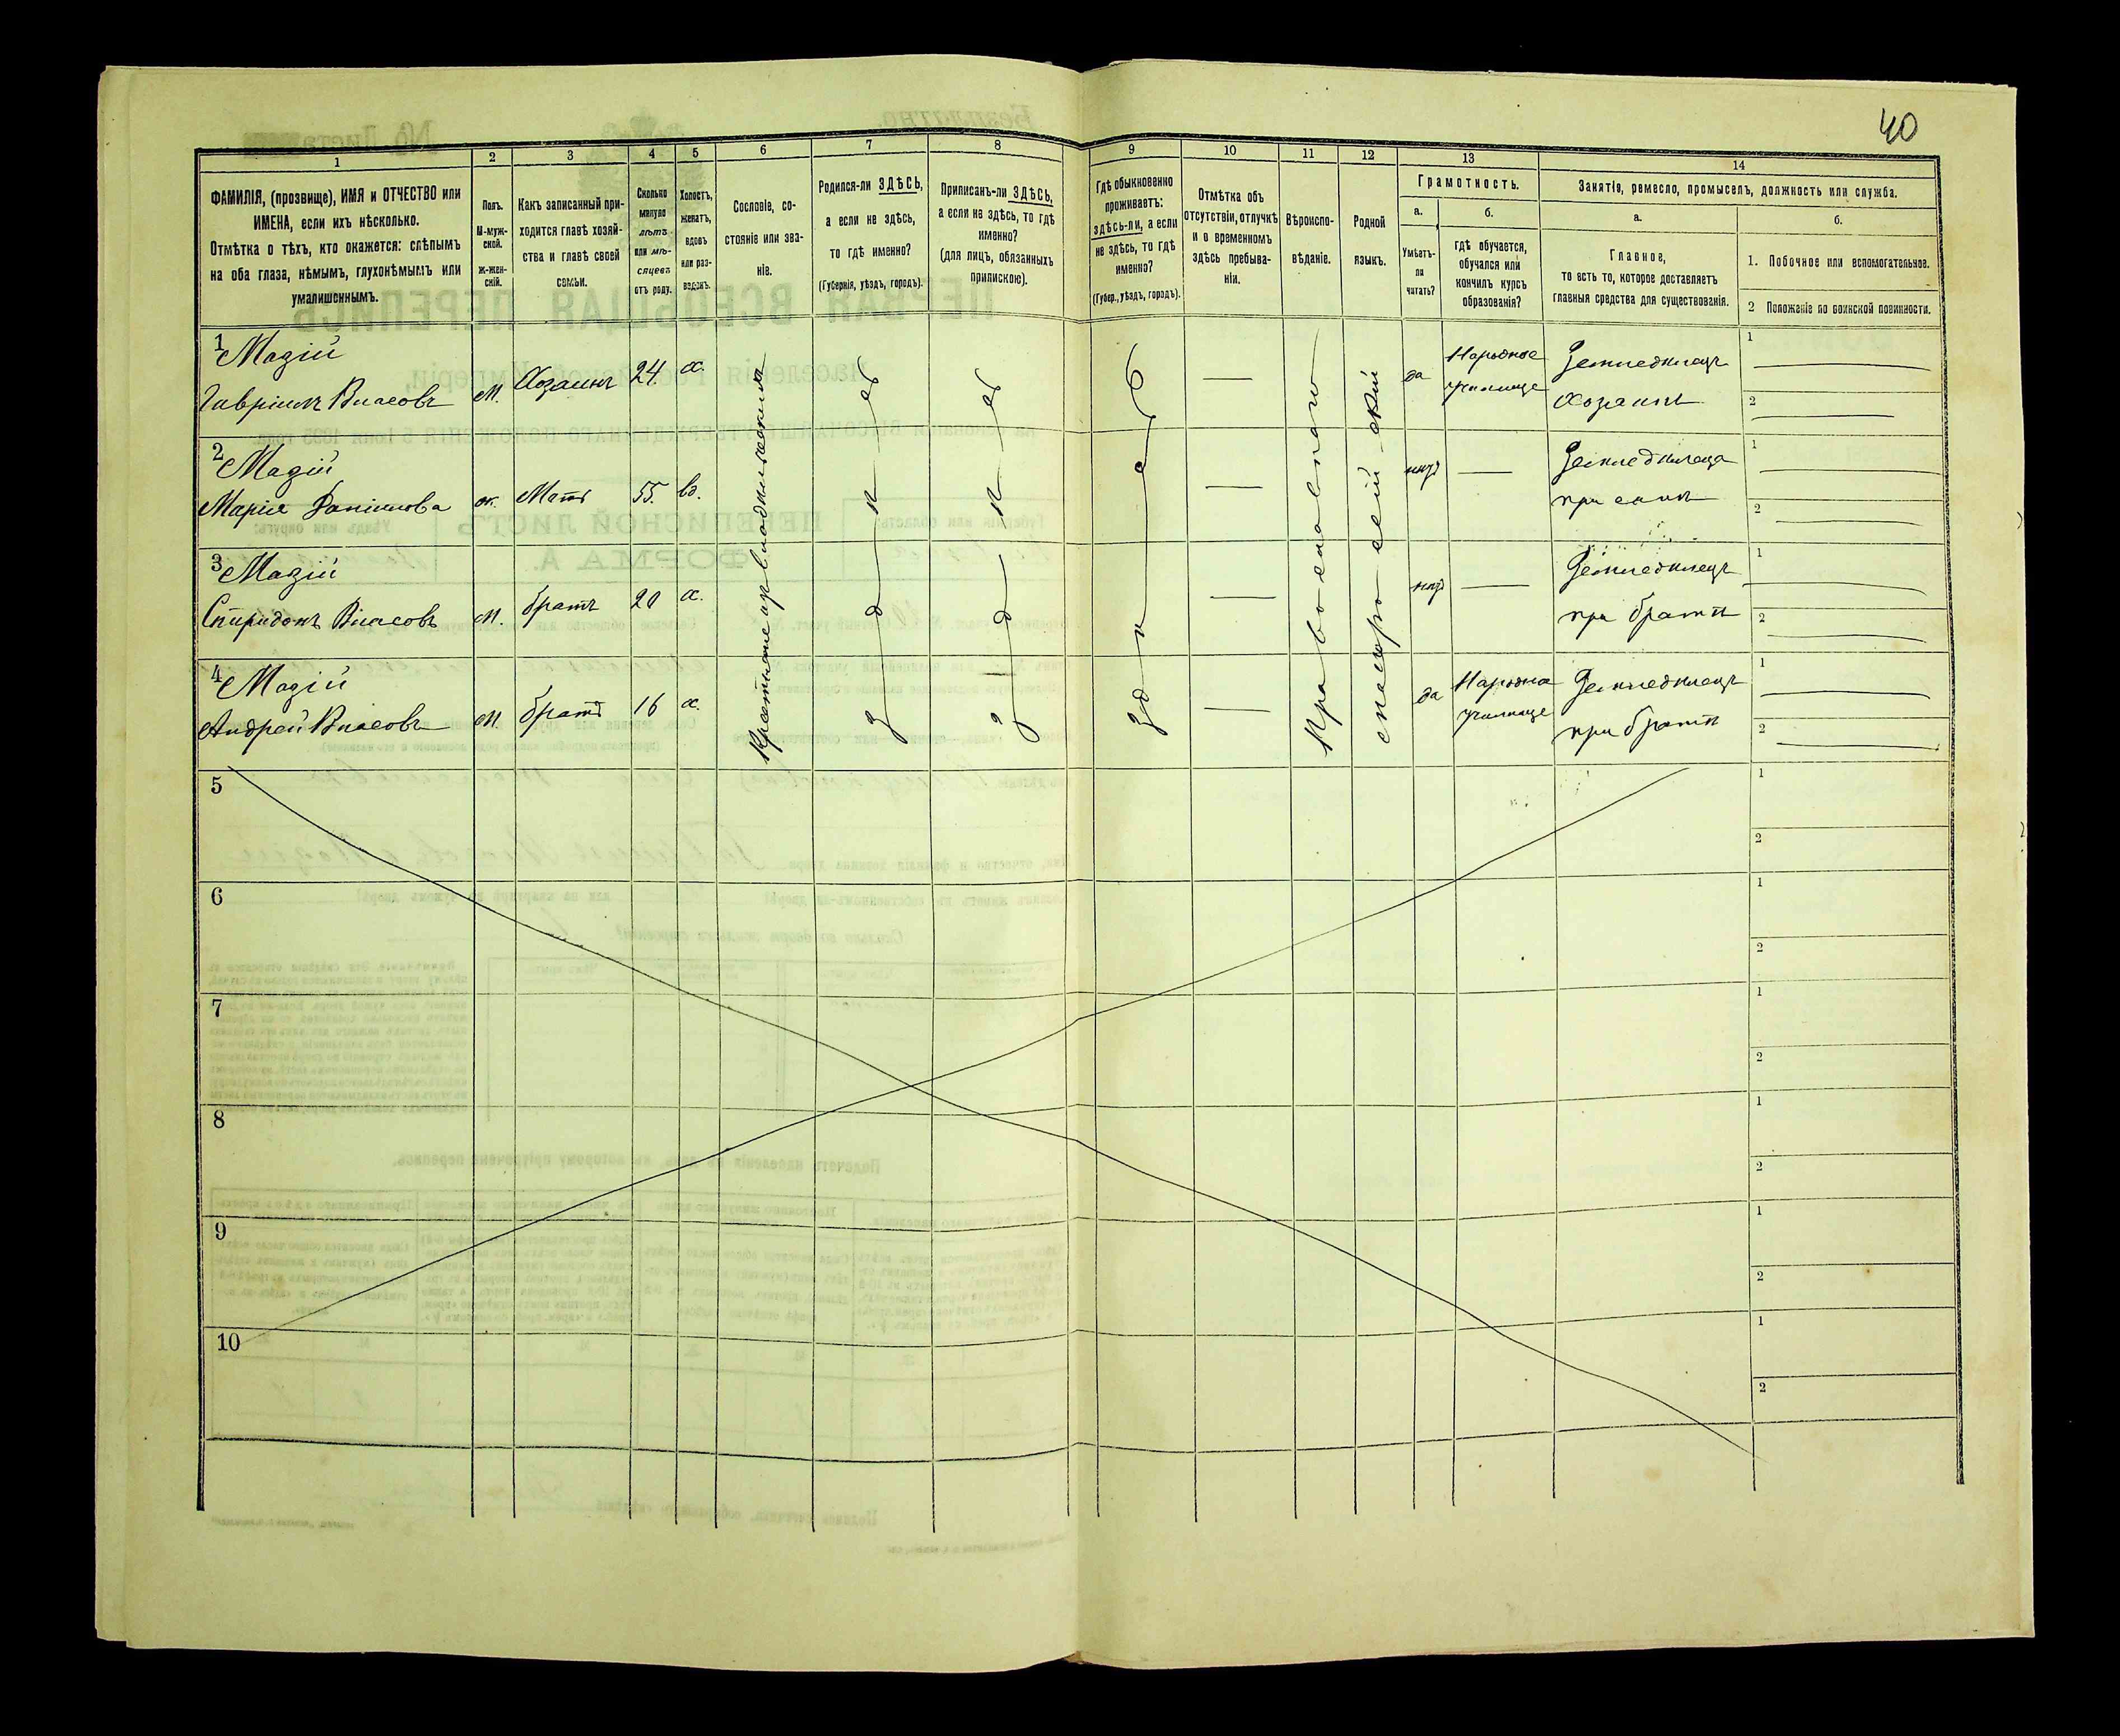 40
1
2
3
4
5
6
7
8
9
10
11
12
13
14
ФАМИЛІЯ, (прозвище), ИМЯ и ОТЧЕСТВО или
ИМЕНА, если ихъ нѣсколько.
Отмѣтка о тѣхъ, кто окажется: слѣпымъ
на оба глаза, нѣмымъ, глухонѣмымъ или
умалишеннымъ.
Полъ.
М-муж-
ской.
ж-жен-
скій.
Какъ записанный при-
ходится главѣ хозяй-
ства и главѣ своей
семьи.
Сколько
минуло
лѣтъ
или мѣ-
сяцевъ
отъ роду.
Холостъ,
женатъ,
вдовъ
или раз-
веденъ.
Сословіе, со-
стояніе или зва-
ніе.
Родился-ли ЗДѢСЬ,
а если не здѣсь,
то гдѣ именно?
(Губернія, уѣздъ, городъ).
Приписанъ-ли ЗДѢСЬ,
а если не здѣсь, то гдѣ
именно?
(для лицъ, обязанныхъ
припискою).
Гдѣ обыкновенно
проживаетъ:
здѣсь-ли, а если
не здѣсь, то гдѣ
именно?
(Губер., уѣздъ, городъ).
Отмѣтка объ
отсутствіи, отлучкѣ
и о временномъ
здѣсь пребыва-
ніи.
Вѣроиспо-
вѣданіе.
Родной
языкъ.
Грамотность.
а.
Умѣетъ-
ли
читать?
б.
гдѣ обучается,
обучался или
кончилъ курсъ
образованія?
Занятіе, ремесло, промыселъ, должность или служба.
а.
Главное,
то есть то, которое доставляетъ
главныя средства для существованія.
б.
1. Побочное или вспомогательное.
2 Положеніе по воинской повинности.
1
Мазій
Гавріилъ Власовъ
М.
Хозяинъ
24.
х.
да
Народное
училище
Земледѣлецъ
хозяинъ
1
2
2
Мазій
Марія
ж.
Мать
55.
вд.
нѣтъ
Земледѣлица
при сынѣ
1
2
3
Мазій
Спиридонъ Власовъ
М.
братъ
20
х.
нѣтъ
Земледѣлецъ
при братѣ
1
2
4
Мазій
Андрей Власовъ
М.
братъ
16
х.
да
училище
Земледѣлецъ
при братѣ
1
2
здѣсь
здѣсь
здѣсь
5
1
2
6
1
2
7
1
2
8
1
2
9
1
2
10
1
2